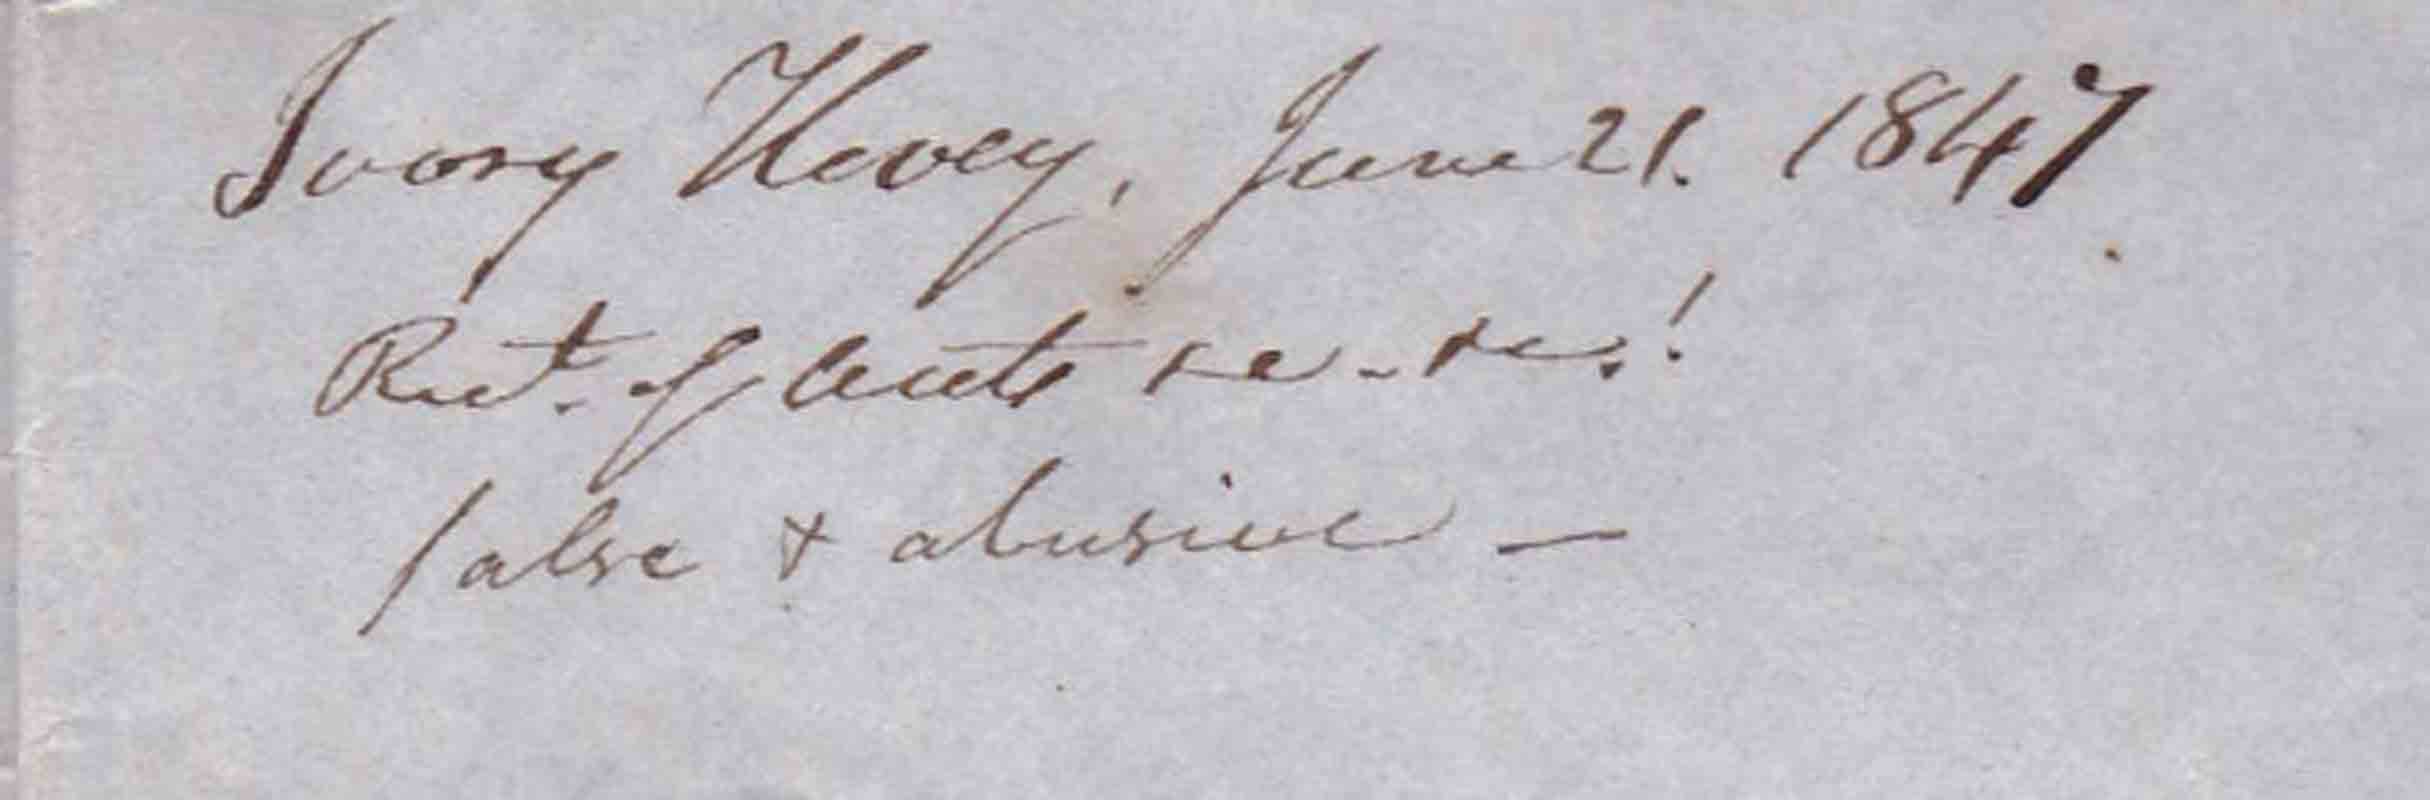 Ivory Hovey, June 21. 1847
Rect. of &c - &c.!
false & abusive —